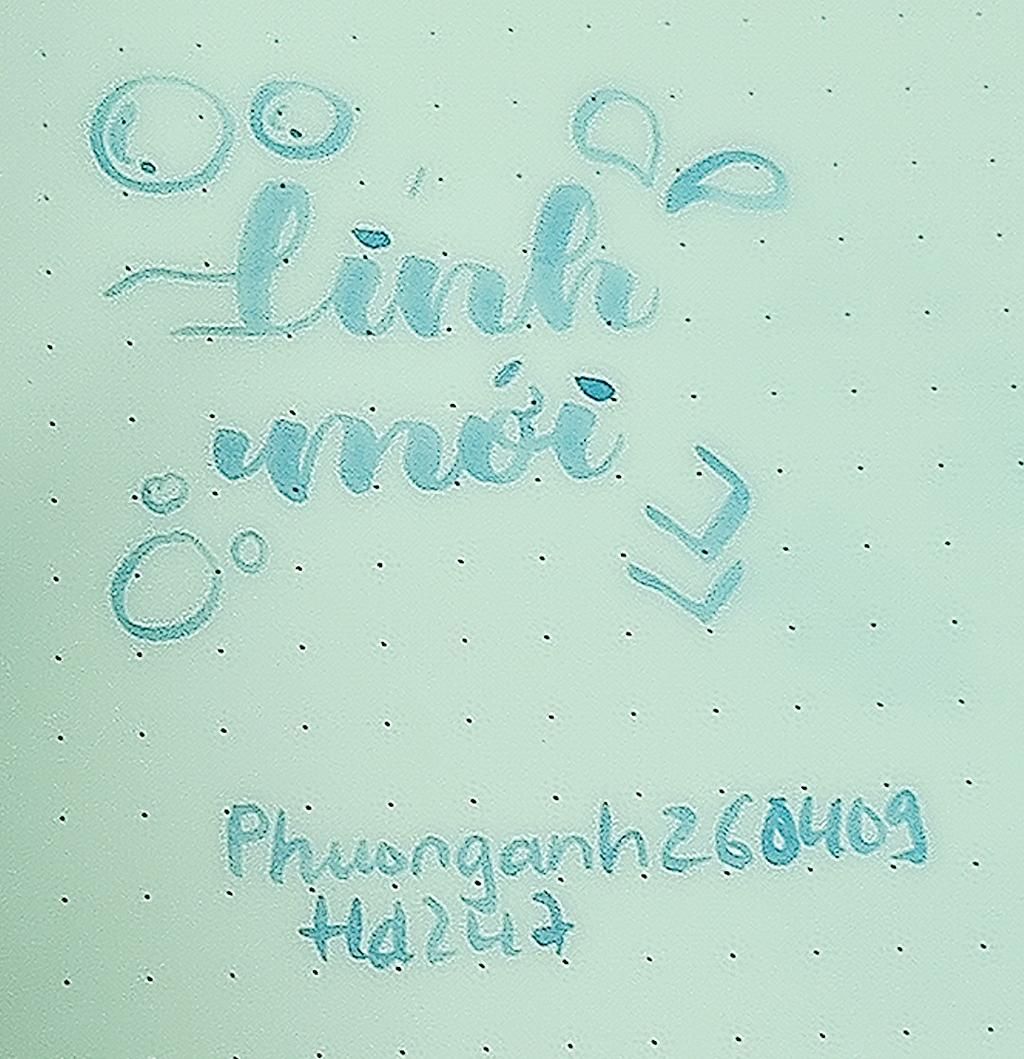 linh
mới
Phuonganh260409
Hd247